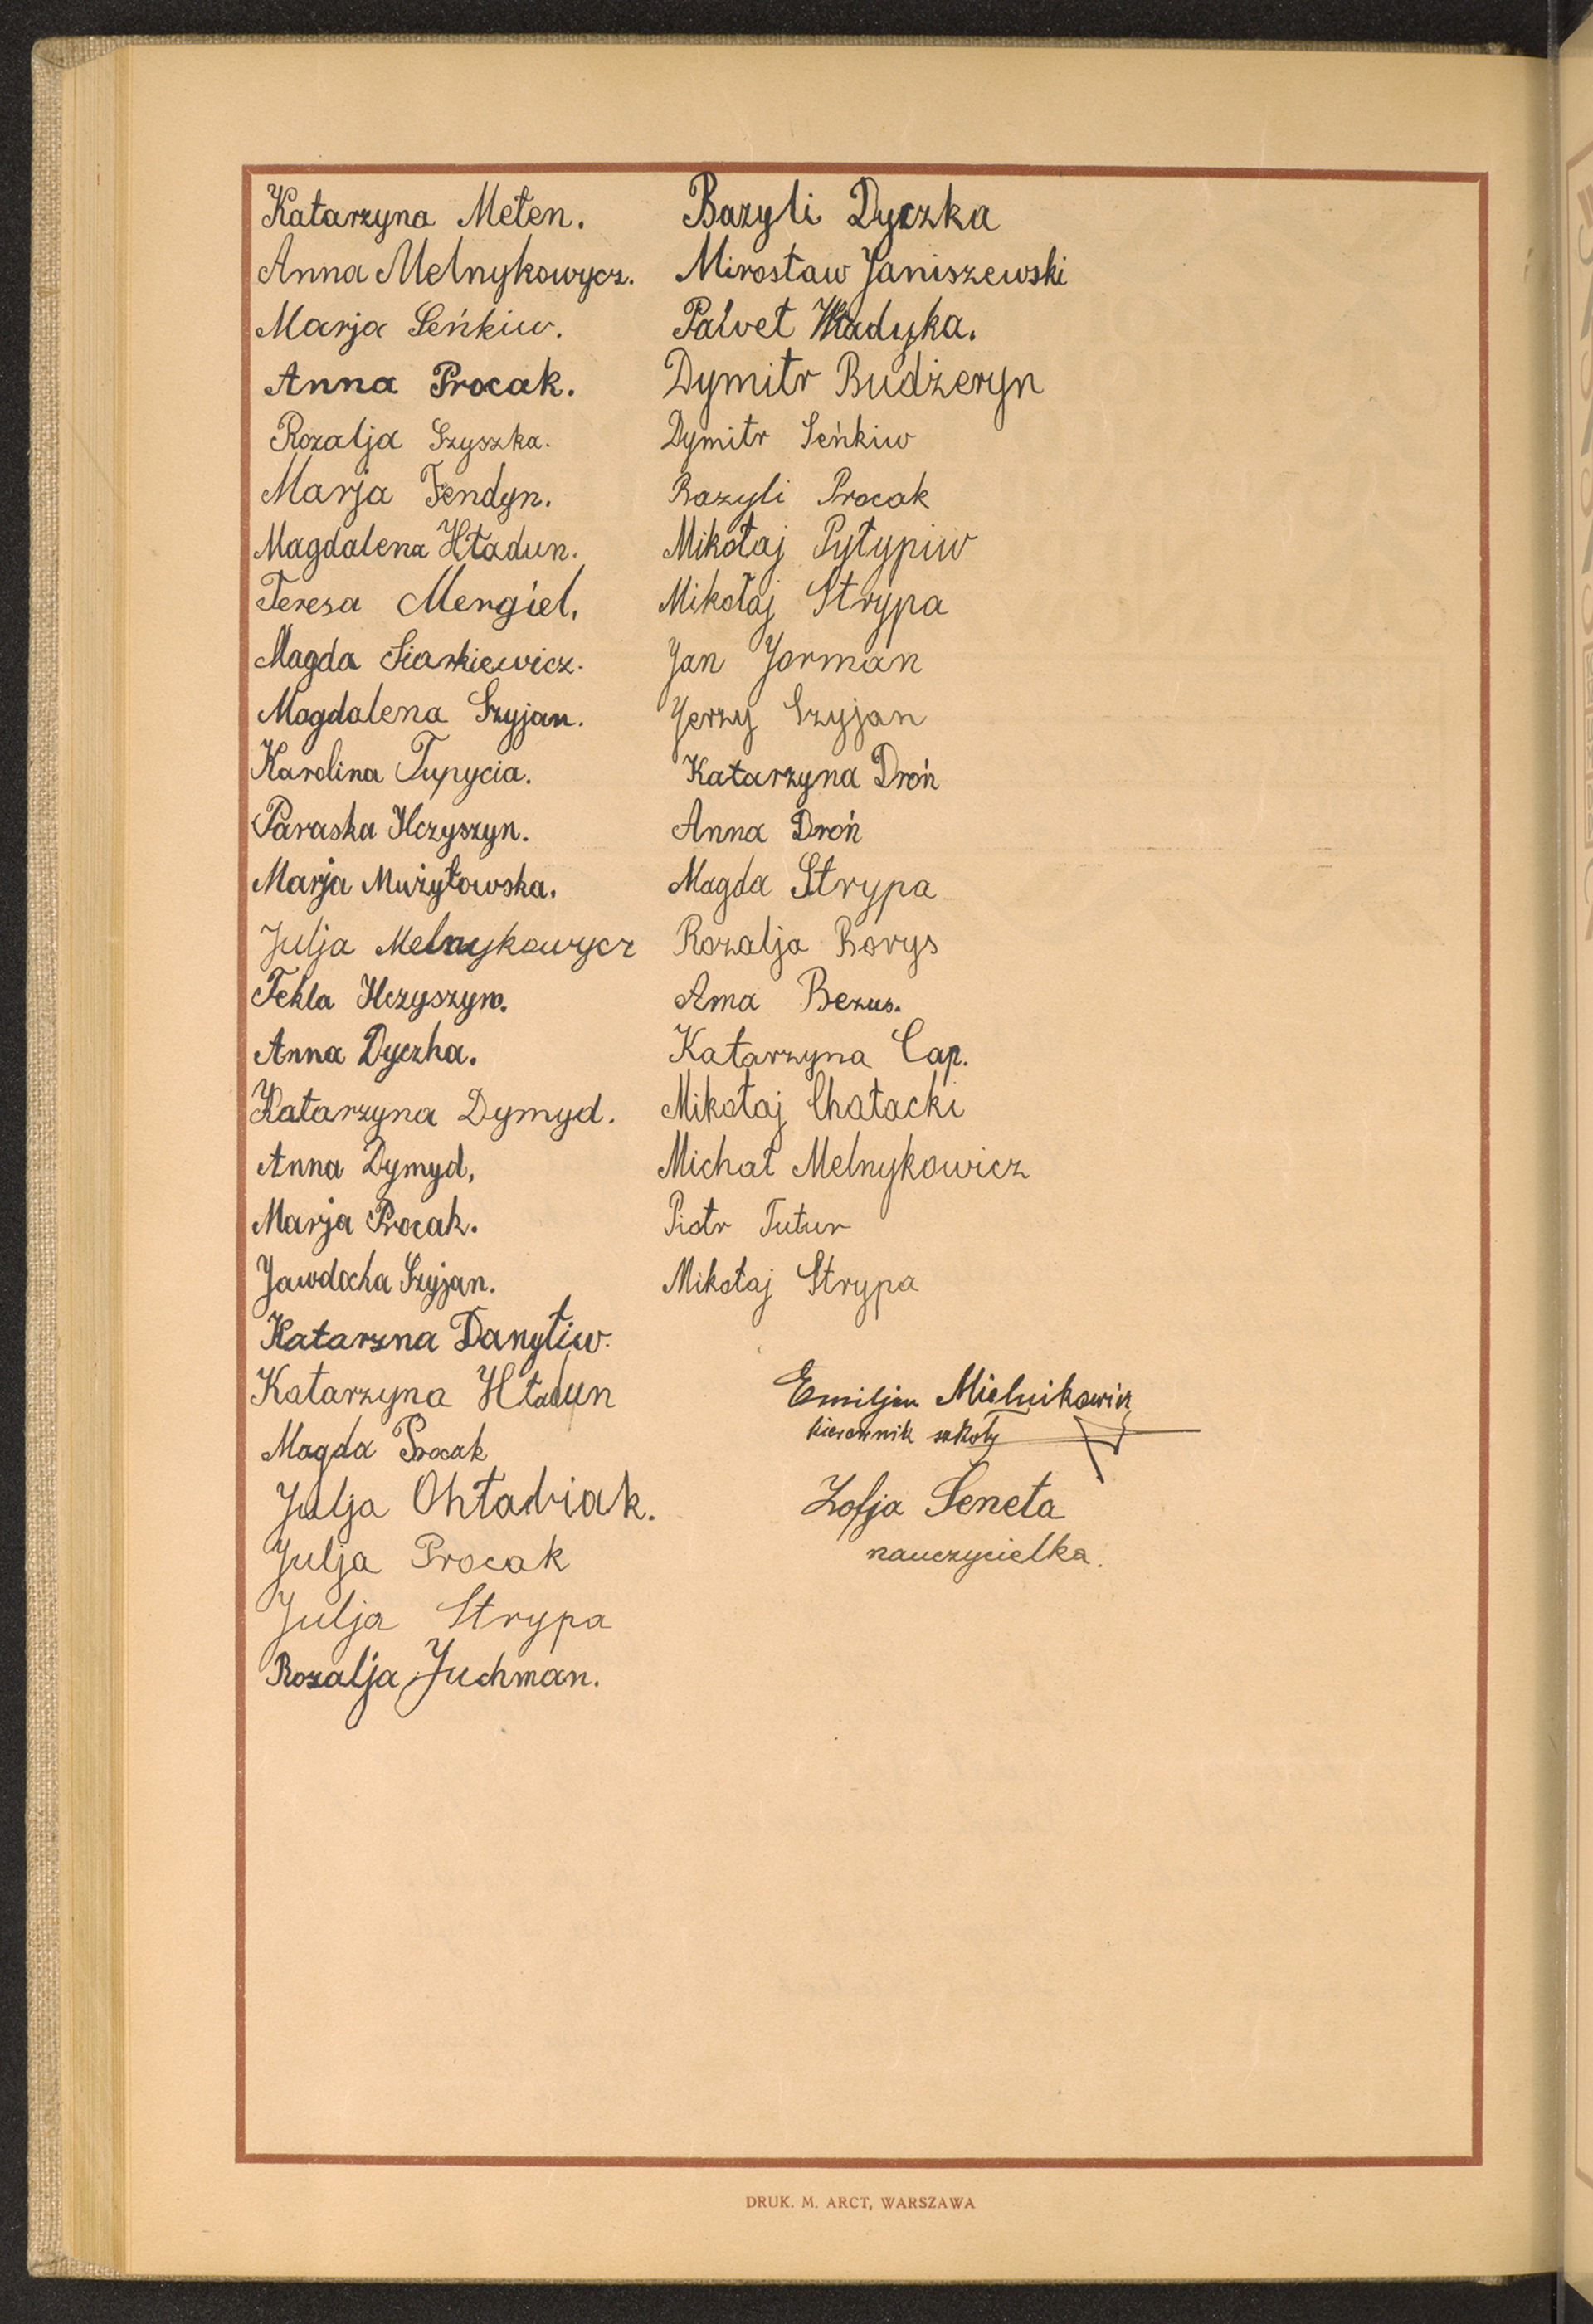 Katarzyna Meten.
Anna Melnykowycz.
Marja Seńkiw.
Anna Procak.
Rozalja Szyszka.
Marja Fendyn.
Magdalena Hładun.
Teresa Mergiel.
Magda Siarkiewicz.
Magdalena Szyjan.
Karolina Tupycia.
Paraska Ilczyszyn.
Marja Mużyłowska.
Julja Melnykowycz
Tekla Ilczyszyn.
Anna Dyczka.
Katarzyna Dymyd.
Anna Dymyd,
Marja Procak.
Jawdocha Szyjan.
Katarzna Danyliw.
Katarzyna Hładun
Magda Procak
Julja Ohładiak.
Julja Procak
Julja Strypa
Rozalja Juchman.
Bazyli Dyczka
Mirosław Janiszewski
Paweł Władyka.
Dymitr Budżeryn
Dymitr Seńkiw
Bazyli Procak
Mikołaj Pyłypiw
Mikołaj Strypa
Jan Jorman
Jerzy Szyjan
Katarzyna Droń
Anna Droń
Magda Strypa
Rozalja Borys
Anna Bezus.
Katarzyna Cap.
Mikołaj Chałacki
Michał Melnykowicz
Piotr Tutur
Mikołaj Strypa
Emiljan Mielnikowicz
kierownik szkoły
Zofja Seneta
nauczycielka.
DRUK. M. ARCT, WARSZAWA